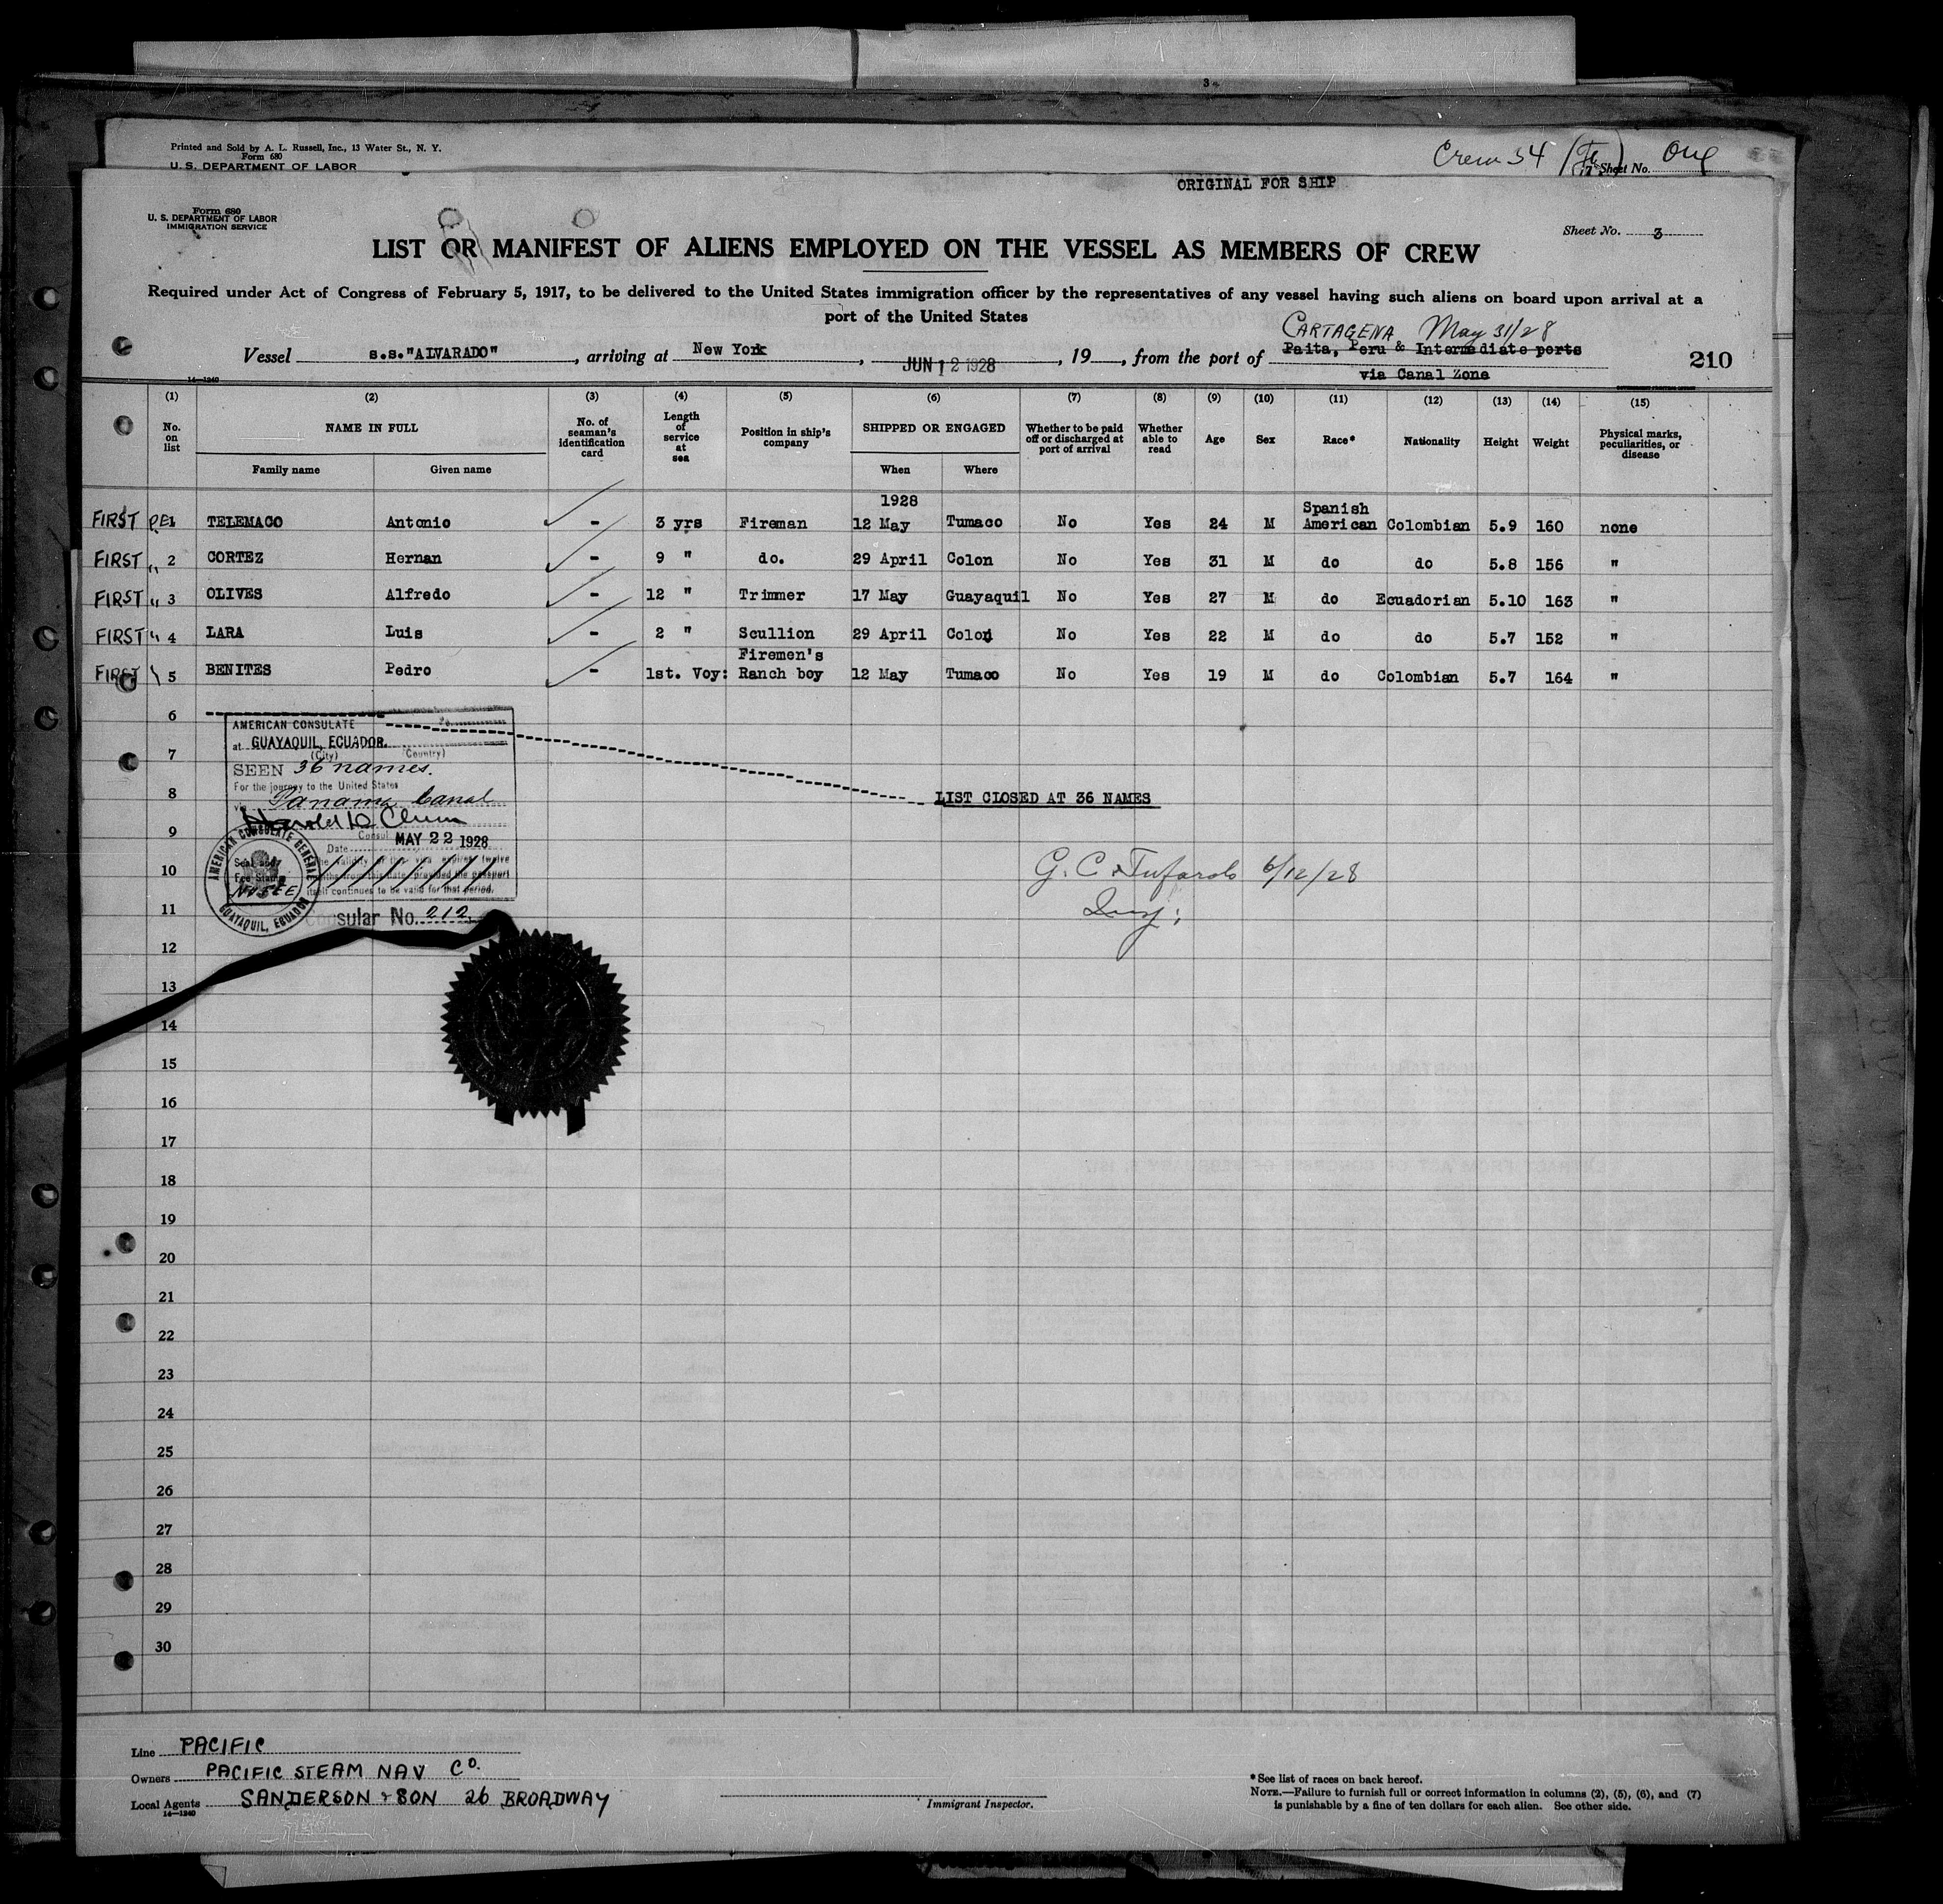 Printed and Sold by A. L. Russell, Inc., 13 Water St., N. Y.
Form 680
U. S. DEPARTMENT OF LABOR
Crew 34
Sheet No. One
ORIGINAL FOR SHIP
Form 680
U. S. DEPARTMENT OF LABOR
IMMIGRATION SERVICE
Sheet No. 3
LIST OR MANIFEST OF ALIENS EMPLOYED ON THE VESSEL AS MEMBERS OF CREW
Required under Act of Congress of February 5, 1917, to be delivered to the United States immigration officer by the representatives of any vessel having such aliens on board upon arrival at a
port of the United States
CARTAGENA May 31/28
Vessel s.s. "ALVARADO", arriving at New York, JUN 12 1928, 19, from the port of Paita, Peru & Intermediate ports
via Canal Zone
210
14-1240
(1) (2) (3) (4) (5) (6) (7) (8) (9) (10) (11) (12) (13) (14) (15)
No. on list NAME IN FULL No. of seaman's identification card Length of service at sea Position in ship's company SHIPPED OR ENGAGED Whether to be paid off or discharged at port of arrival Whether able to read Age Sex Race* Nationality Height Weight Physical marks, peculiarities, or disease
Family name Given name When Where
1928
FIRST PE 1 TELEMACO Antonio - 3 yrs Fireman 12 May Tumaco No Yes 24 M Spanish American Colombian 5.9 160 none
FIRST " 2 CORTEZ Hernan - 9 " do. 29 April Colon No Yes 31 M do do 5.8 156 "
FIRST " 3 OLIVES Alfredo - 12 " Trimmer 17 May Guayaquil No Yes 27 M do Ecuadorian 5.10 163 "
FIRST " 4 LARA Luis - 2 " Scullion 29 April Colon No Yes 22 M do do 5.7 152 "
FIRST 5 BENITES Pedro - 1st. Voy: Firemen's Ranch boy 12 May Tumaco No Yes 19 M do Colombian 5.7 164 "
6
7
8
9
10
11
12
13
14
15
16
17
18
19
20
21
22
23
24
25
26
27
28
29
30
AMERICAN CONSULATE
at GUAYAQUIL, ECUADOR.
(City) (Country)
SEEN 36 names.
For the journey to the United States
via Panama Canal
Harold D Clum
Consul
Date MAY 22 1928
The validity of this visa expires twelve
months from this date provided the passport
itself continues to be valid for that period.
Seal and
Fee Stamp
NO FEE
AMERICAN CONSULATE GENERAL
GUAYAQUIL, ECUADOR
Consular No. 212
LIST CLOSED AT 36 NAMES
G. C. Tufarolo 6/12/28
Insp:
Line PACIFIC
Owners PACIFIC STEAM NAV Co.
Local Agents SANDERSON & SON 26 BROADWAY
14-1240
Immigrant Inspector.
*See list of races on back hereof.
NOTE.—Failure to furnish full or correct information in columns (2), (5), (6), and (7)
is punishable by a fine of ten dollars for each alien. See other side.